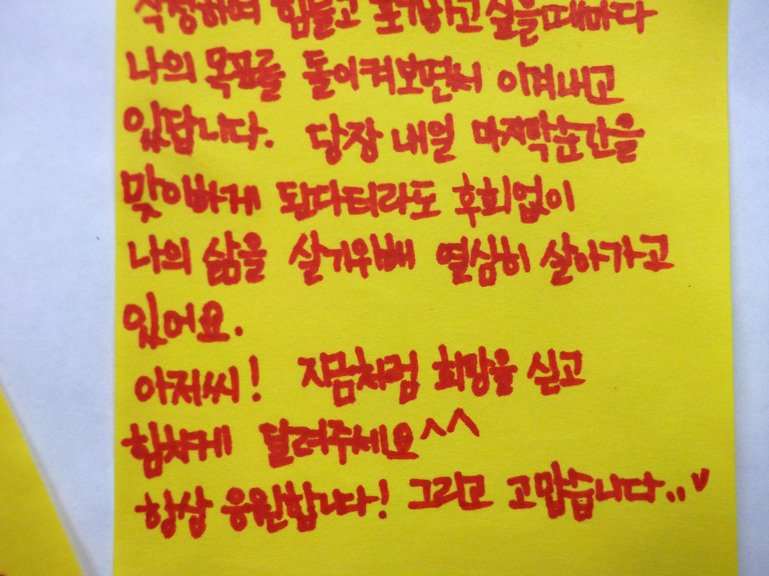 작정하며 힘들고 포기하고 싶을때마다
나의 목표를 돌이켜보면서 이겨내고
있답니다. 당장 내일 마지막순간을
맞이하게 된다더라도 후회없이
나의 삶을 살기위해 열심히 살아가고
있어요.
아저씨! 지금처럼 희망을 싣고
힘차게 달려주세요^^
항상 응원합니다! 그리고 고맙습니다..♥